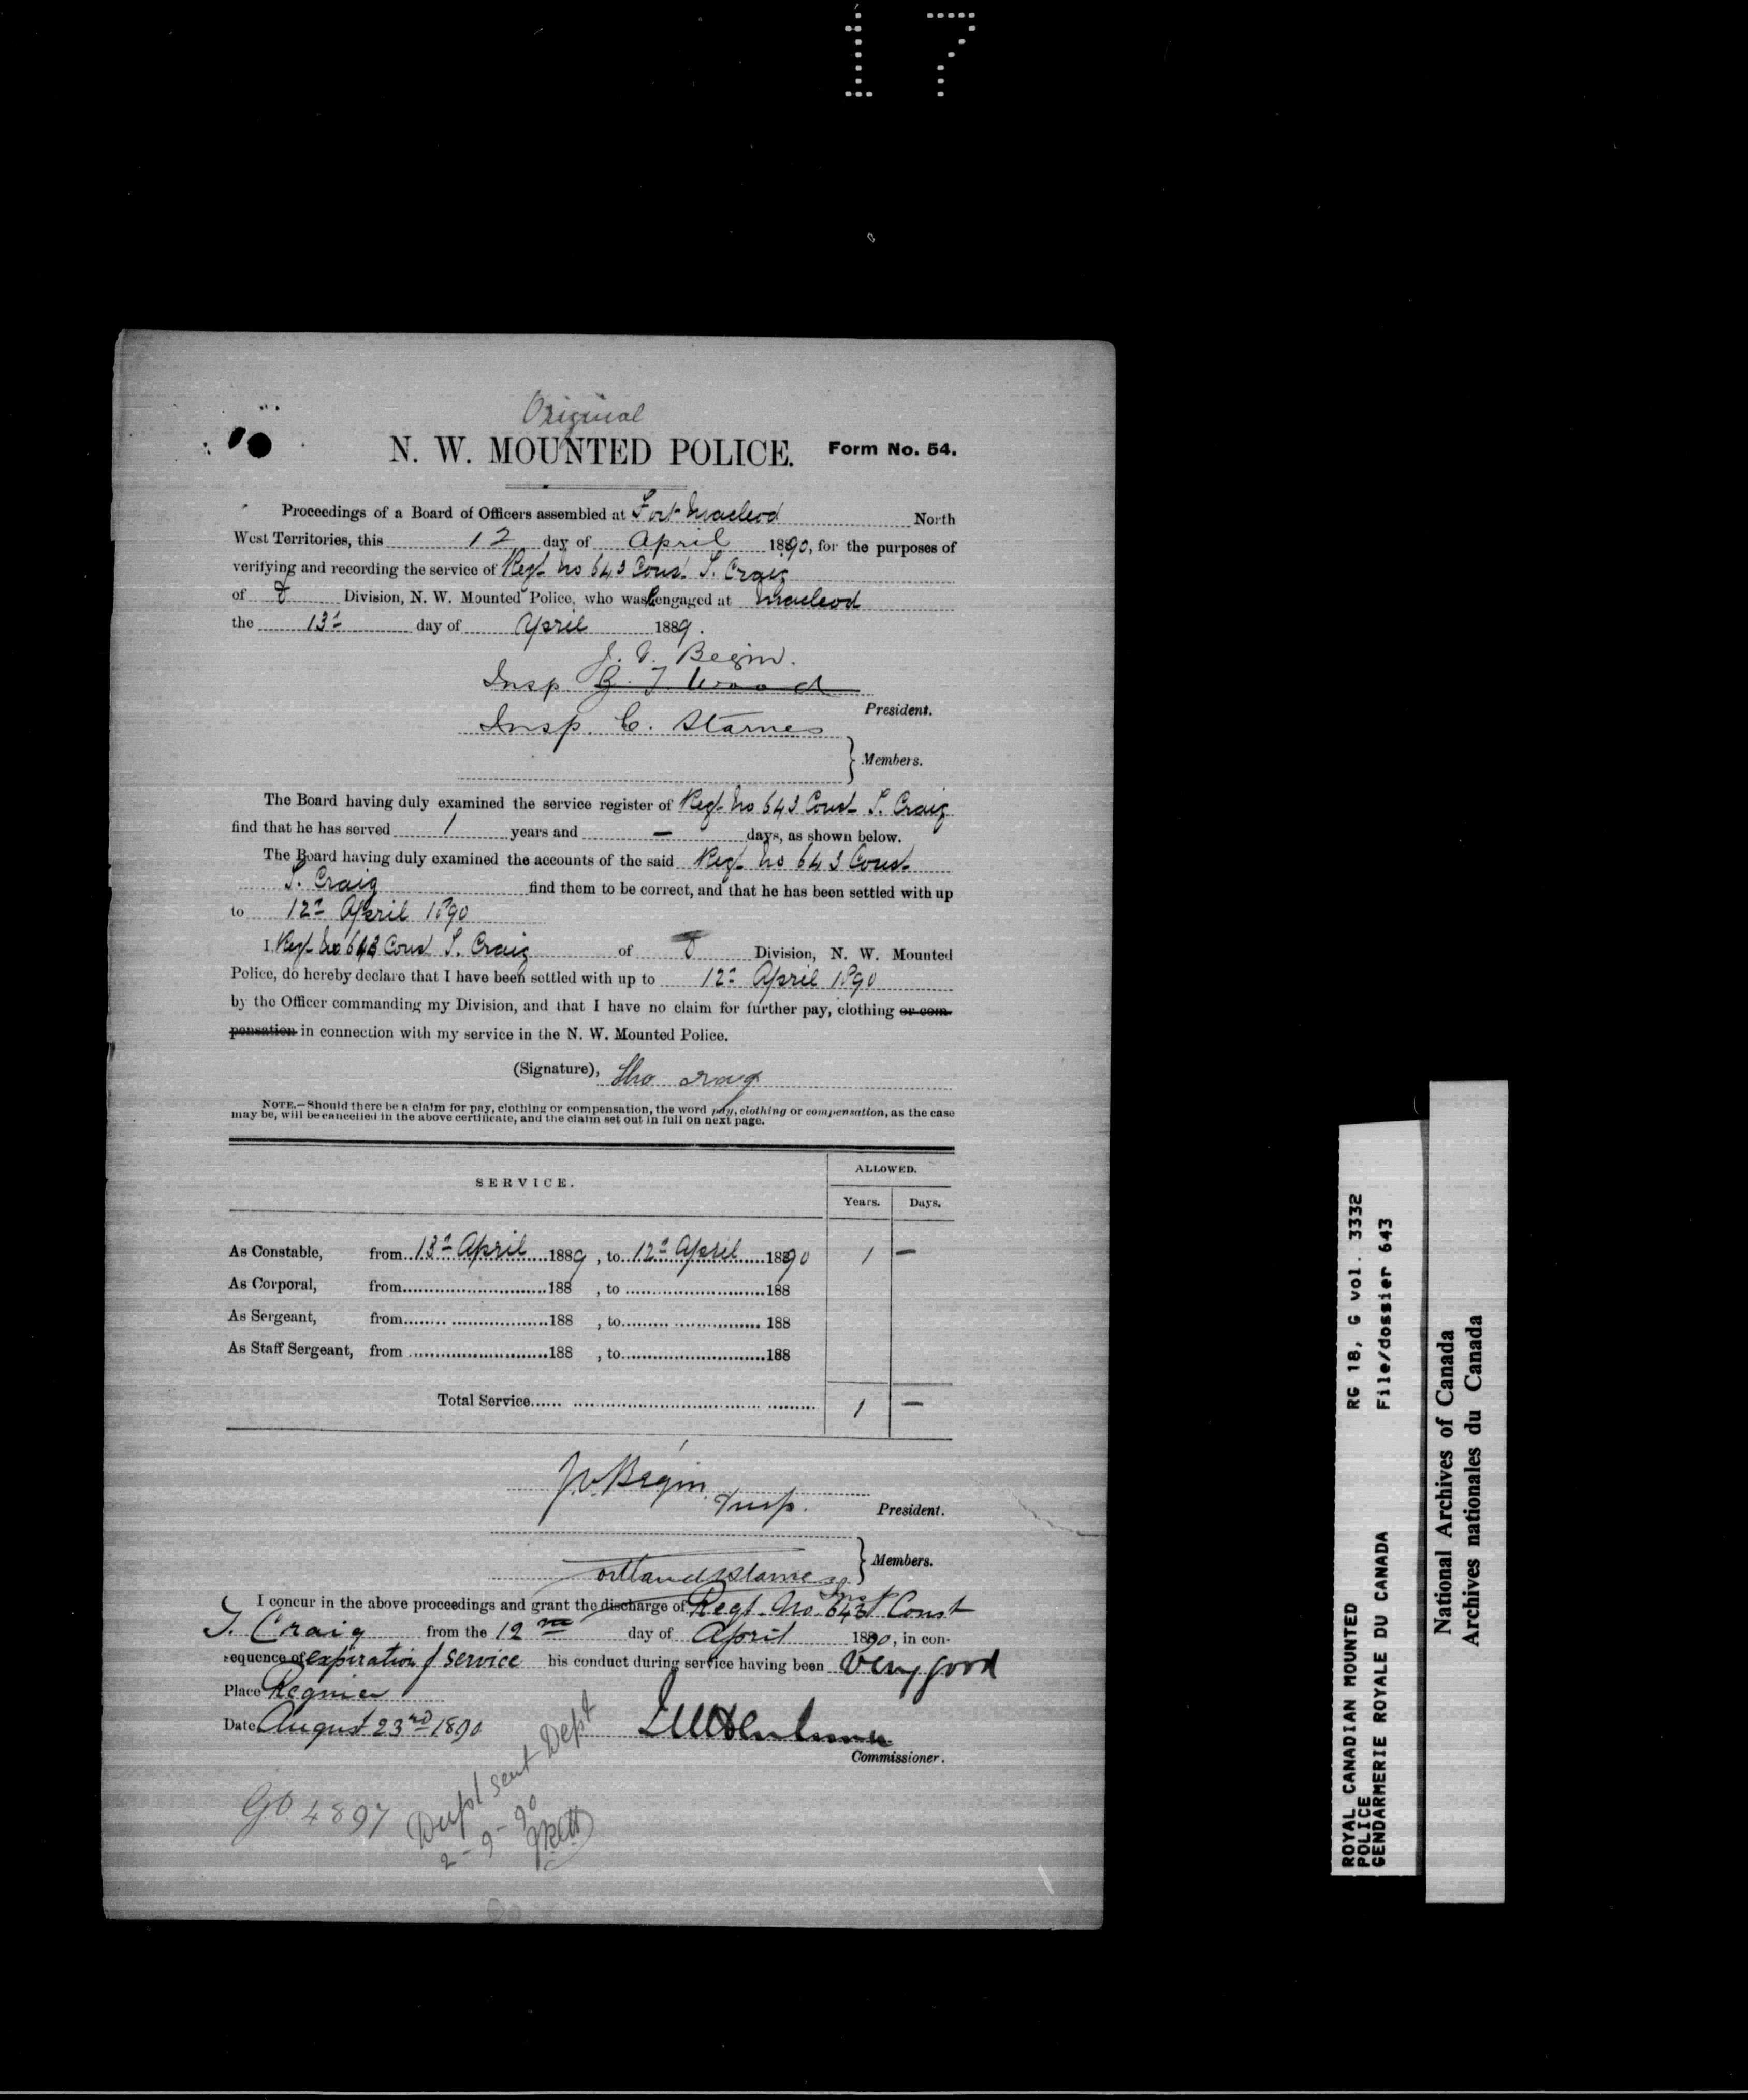 17
Original
N. W. MOUNTED POLICE. Form No. 54.
Proceedings of a Board of Officers assembled at Fort Macleod North
West Territories, this 12 day of April 1890, for the purposes of
verifying and recording the service of Regt No 643 Const T. Craig
of Division, N. W. Mounted Police, who was Rengaged at Macleod
the 13th day of April 1889.
J. V. Begin.
Insp. Z. T. Wood
President.
Insp. C. Starnes
Members.
The Board having duly examined the service register of Regt No 643 Const T. Craig
find that he has served 1 years and — days, as shown below.
The Board having duly examined the accounts of the said Regt No 643 Const
T. Craig find them to be correct, and that he has been settled with up
to 12th April 1890
I, Regt No 643 Const T. Craig of Division, N. W. Mounted
Police, do hereby declare that I have been settled with up to 12th April 1890
by the Officer commanding my Division, and that I have no claim for further pay, clothing or com-
pensation in connection with my service in the N. W. Mounted Police.
(Signature), Tho Craig
NOTE.—Should there be a claim for pay, clothing or compensation, the word pay, clothing or compensation, as the case
may be, will be cancelled in the above certificate, and the claim set out in full on next page.
SERVICE. ALLOWED.
Years. Days.
As Constable, from 13th April 1889, to 12th April 1890 1 —
As Corporal, from 188 , to 188
As Sergeant, from 188 , to 188
As Staff Sergeant, from 188 , to 188
Total Service 1 —
J.V. Begin Insp.
President.
Members.
Cortland Starnes
Inspt
I concur in the above proceedings and grant the discharge of Regt. No. 643 Const
T. Craig from the 12th day of April 1890, in con-
sequence of expiration of service his conduct during service having been Very good
Place Regina
Date August 23rd 1890
Commissioner.
G.O. 4897
Dupl sent Dept
2-9-90
ROYAL CANADIAN MOUNTED RG 18, G vol. 3332
POLICE
GENDARMERIE ROYALE DU CANADA File/dossier 643
National Archives of Canada
Archives nationales du Canada